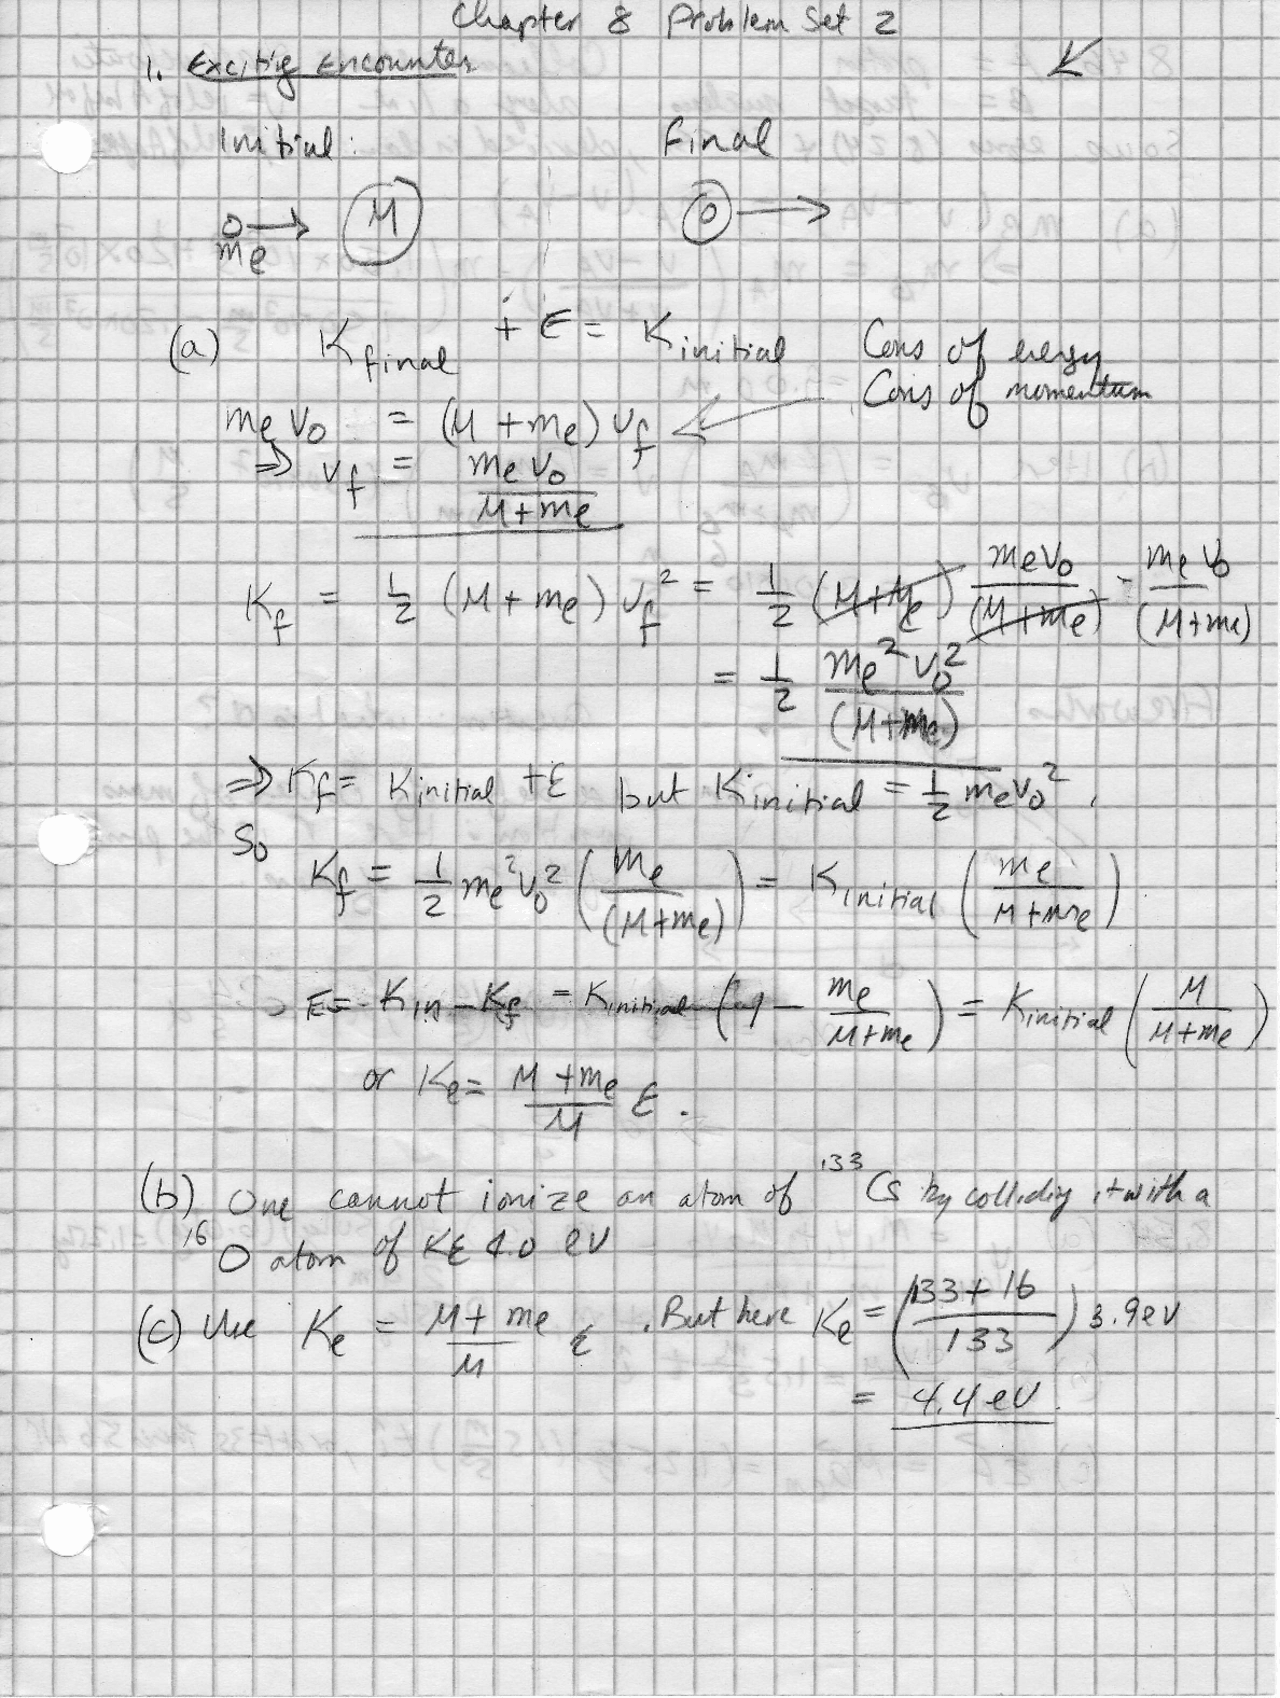 Chapter 8 Problem Set 2
1. Exciting Encounter
Initial: Final
me M
(a) K final + E = K initial Cons of energy
Cons of momentum
me v0 = (M + me) vf
⇒ vf = me v0 / (M + me)
Kf = 1/2 (M + me) vf² = 1/2 (M + me) me v0 / (M + me) · me v0 / (M + me)
= 1/2 me² v0² / (M + me)
⇒ Kf = K initial + E but K initial = 1/2 me v0² ,
So
Kf = 1/2 me² v0² (me / (M + me)) = K initial (me / (M + me))
E = Kin − Kf = K initial (1 − me / (M + me)) = K initial (M / (M + me))
or Ke = (M + me) / M E .
(b) One cannot ionize an atom of ¹³³Cs by colliding it with a
¹⁶O atom of KE 4.0 eV
(c) Use Ke = (M + me) / M E . But here Ke = ((133 + 16) / 133) 3.9 eV
= 4.4 eV